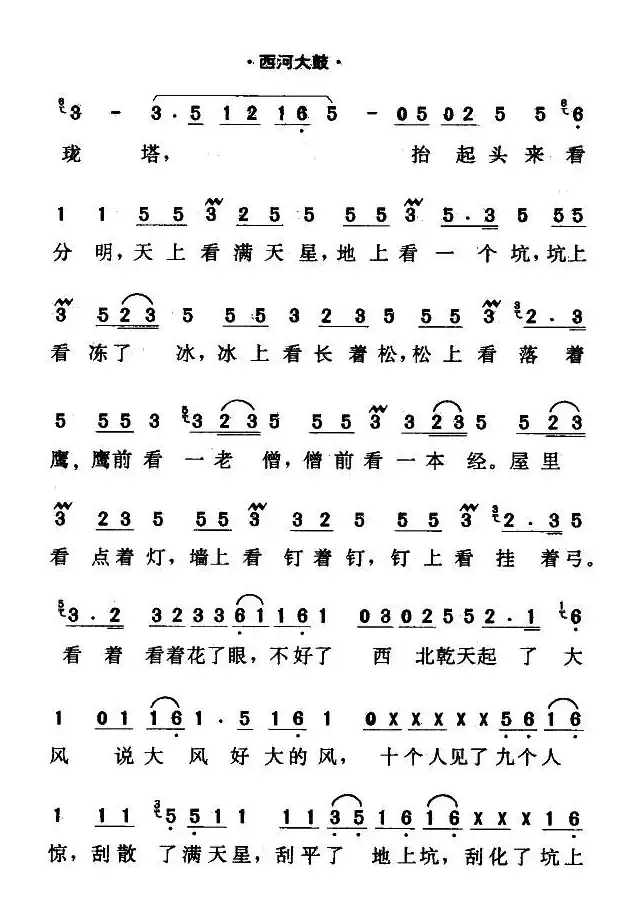 ·西河大鼓·
3 - 3.5 1 2 1 6 5 - 0 5 0 2 5 5 6
珑 塔, 抬 起 头 来 看
1 1 5 5 3 2 5 5 5 5 3 5.3 5 55
分 明,天 上 看 满 天 星,地 上 看 一 个 坑,坑上
3 5 2 3 5 5 5 5 3 2 3 5 5 5 3 2.3
看 冻了 冰,冰 上 看 长 着 松,松 上 看 落 着
5 5 5 3 3 2 3 5 5 5 3 3 2 3 5 5 2 3
鹰,鹰前 看 一老 僧,僧 前 看 一 本 经。屋 里
3 2 3 5 5 5 3 3 2 5 5 5 3 2.3 5
看 点着 灯,墙上 看 钉着 钉,钉 上 看 挂 着弓。
3.2 3 2 3 3 6 1 1 6 1 0 3 0 2 5 5 2.1 6
看 着 看着花了眼,不好了 西 北乾天起 了 大
1 0 1 1 6 1.5 1 6 1 0 X X X X X 5 6 1 6
风 说 大 风 好 大的 风, 十个人见了九个人
1 1 1 5 5 1 1 1 1 3 5 1 6 1 6 X X X 1 6
惊,刮散 了满天星,刮平了 地上坑,刮化了坑上